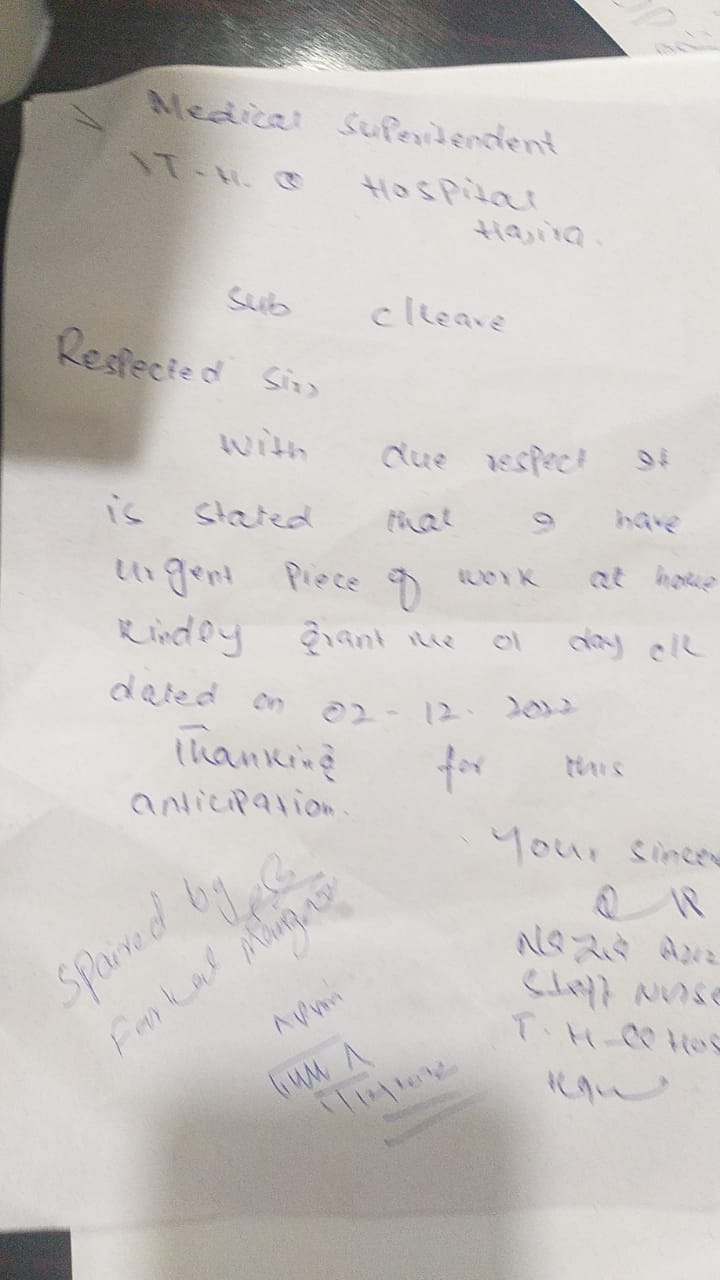 Medical Superitendent
T.H.Q Hospital
Hajira.
Sub c/leave
Respected Sir,
With due respect It
is stated that I have
urgent Piece of work at home
Kindly grant me 01 day c/l
dated on 02-12-2022
Thanking for this
anticipation.
Your sincer
Nazia Aziz
Staff Nurse
T.H.Q Hos
Spaired by